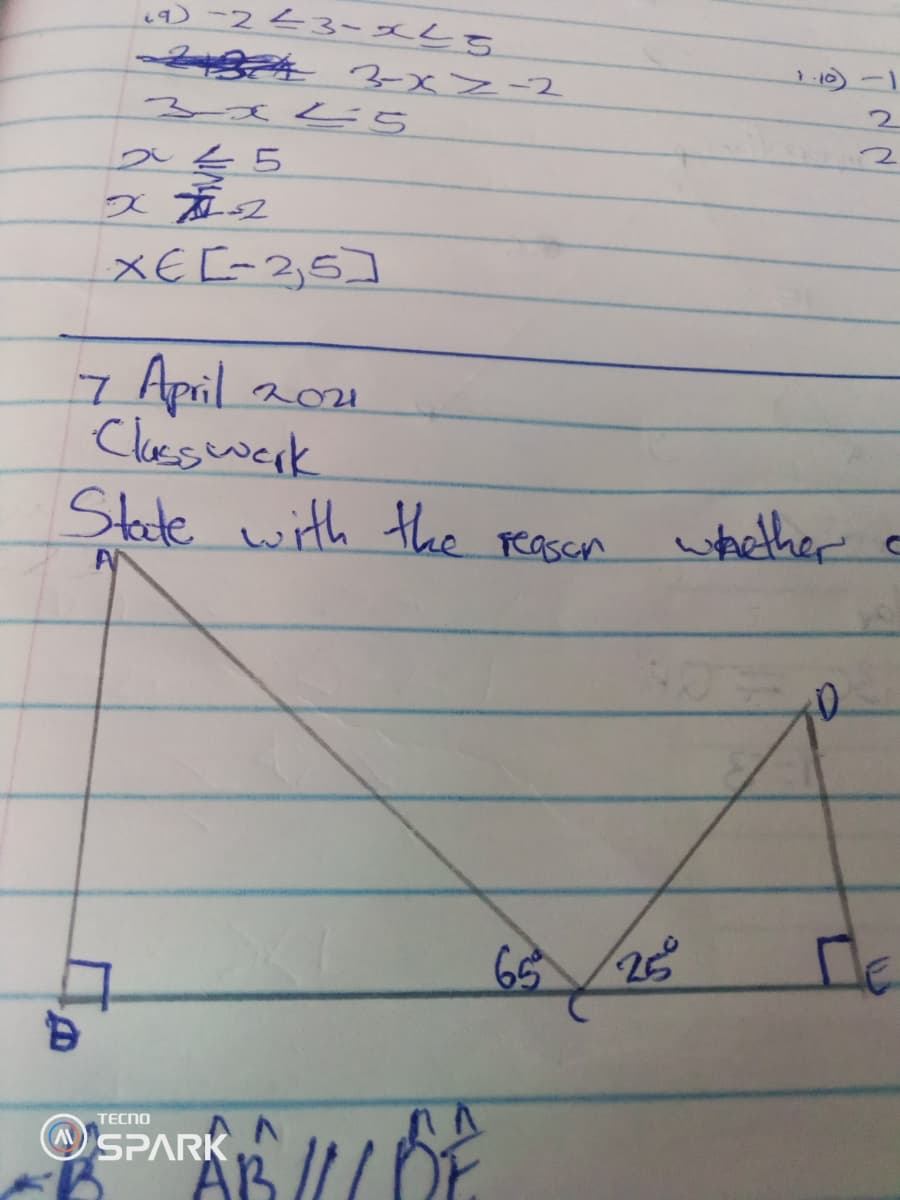 1.9) -2 ≤ 3-x ≤ 5
3-x ≥ -2
3-x ≤ 5
x ≤ 5
x ≥ -2
x∈[-2,5]
1.10) -1
2
2
7 April 2021
Classwork
State with the reason whether
A
D
65° 25°
B C E
TECNO
SPARK
B̂ ÂB̂ /// D̂Ê